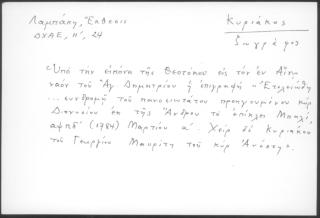 Λαμπάκη, Ἔκθεσις
ΔΧΑΕ, Η', 24
Κυριάκος
ζωγράφος
Ὑπὸ τὴν εἰκόνα τῆς Θεοτόκου εἰς τὸν ἐν Αἴνῳ
ναὸν τοῦ Ἁγ. Δημητρίου ἡ ἐπιγραφή "Ἐτελειώθη
... συνδρομῇ τοῦ πανοσιωτάτου προηγουμένου κὺρ
Διονυσίου ἐκ τῆς Ἄνδρου τὸ ἐπίκλην
αψπδ' (1784) Μαρτίου α'. Χεὶρ δὲ Κυριάκου
τοῦ Γεωργίου Μαυρίτη τοῦ κὺρ